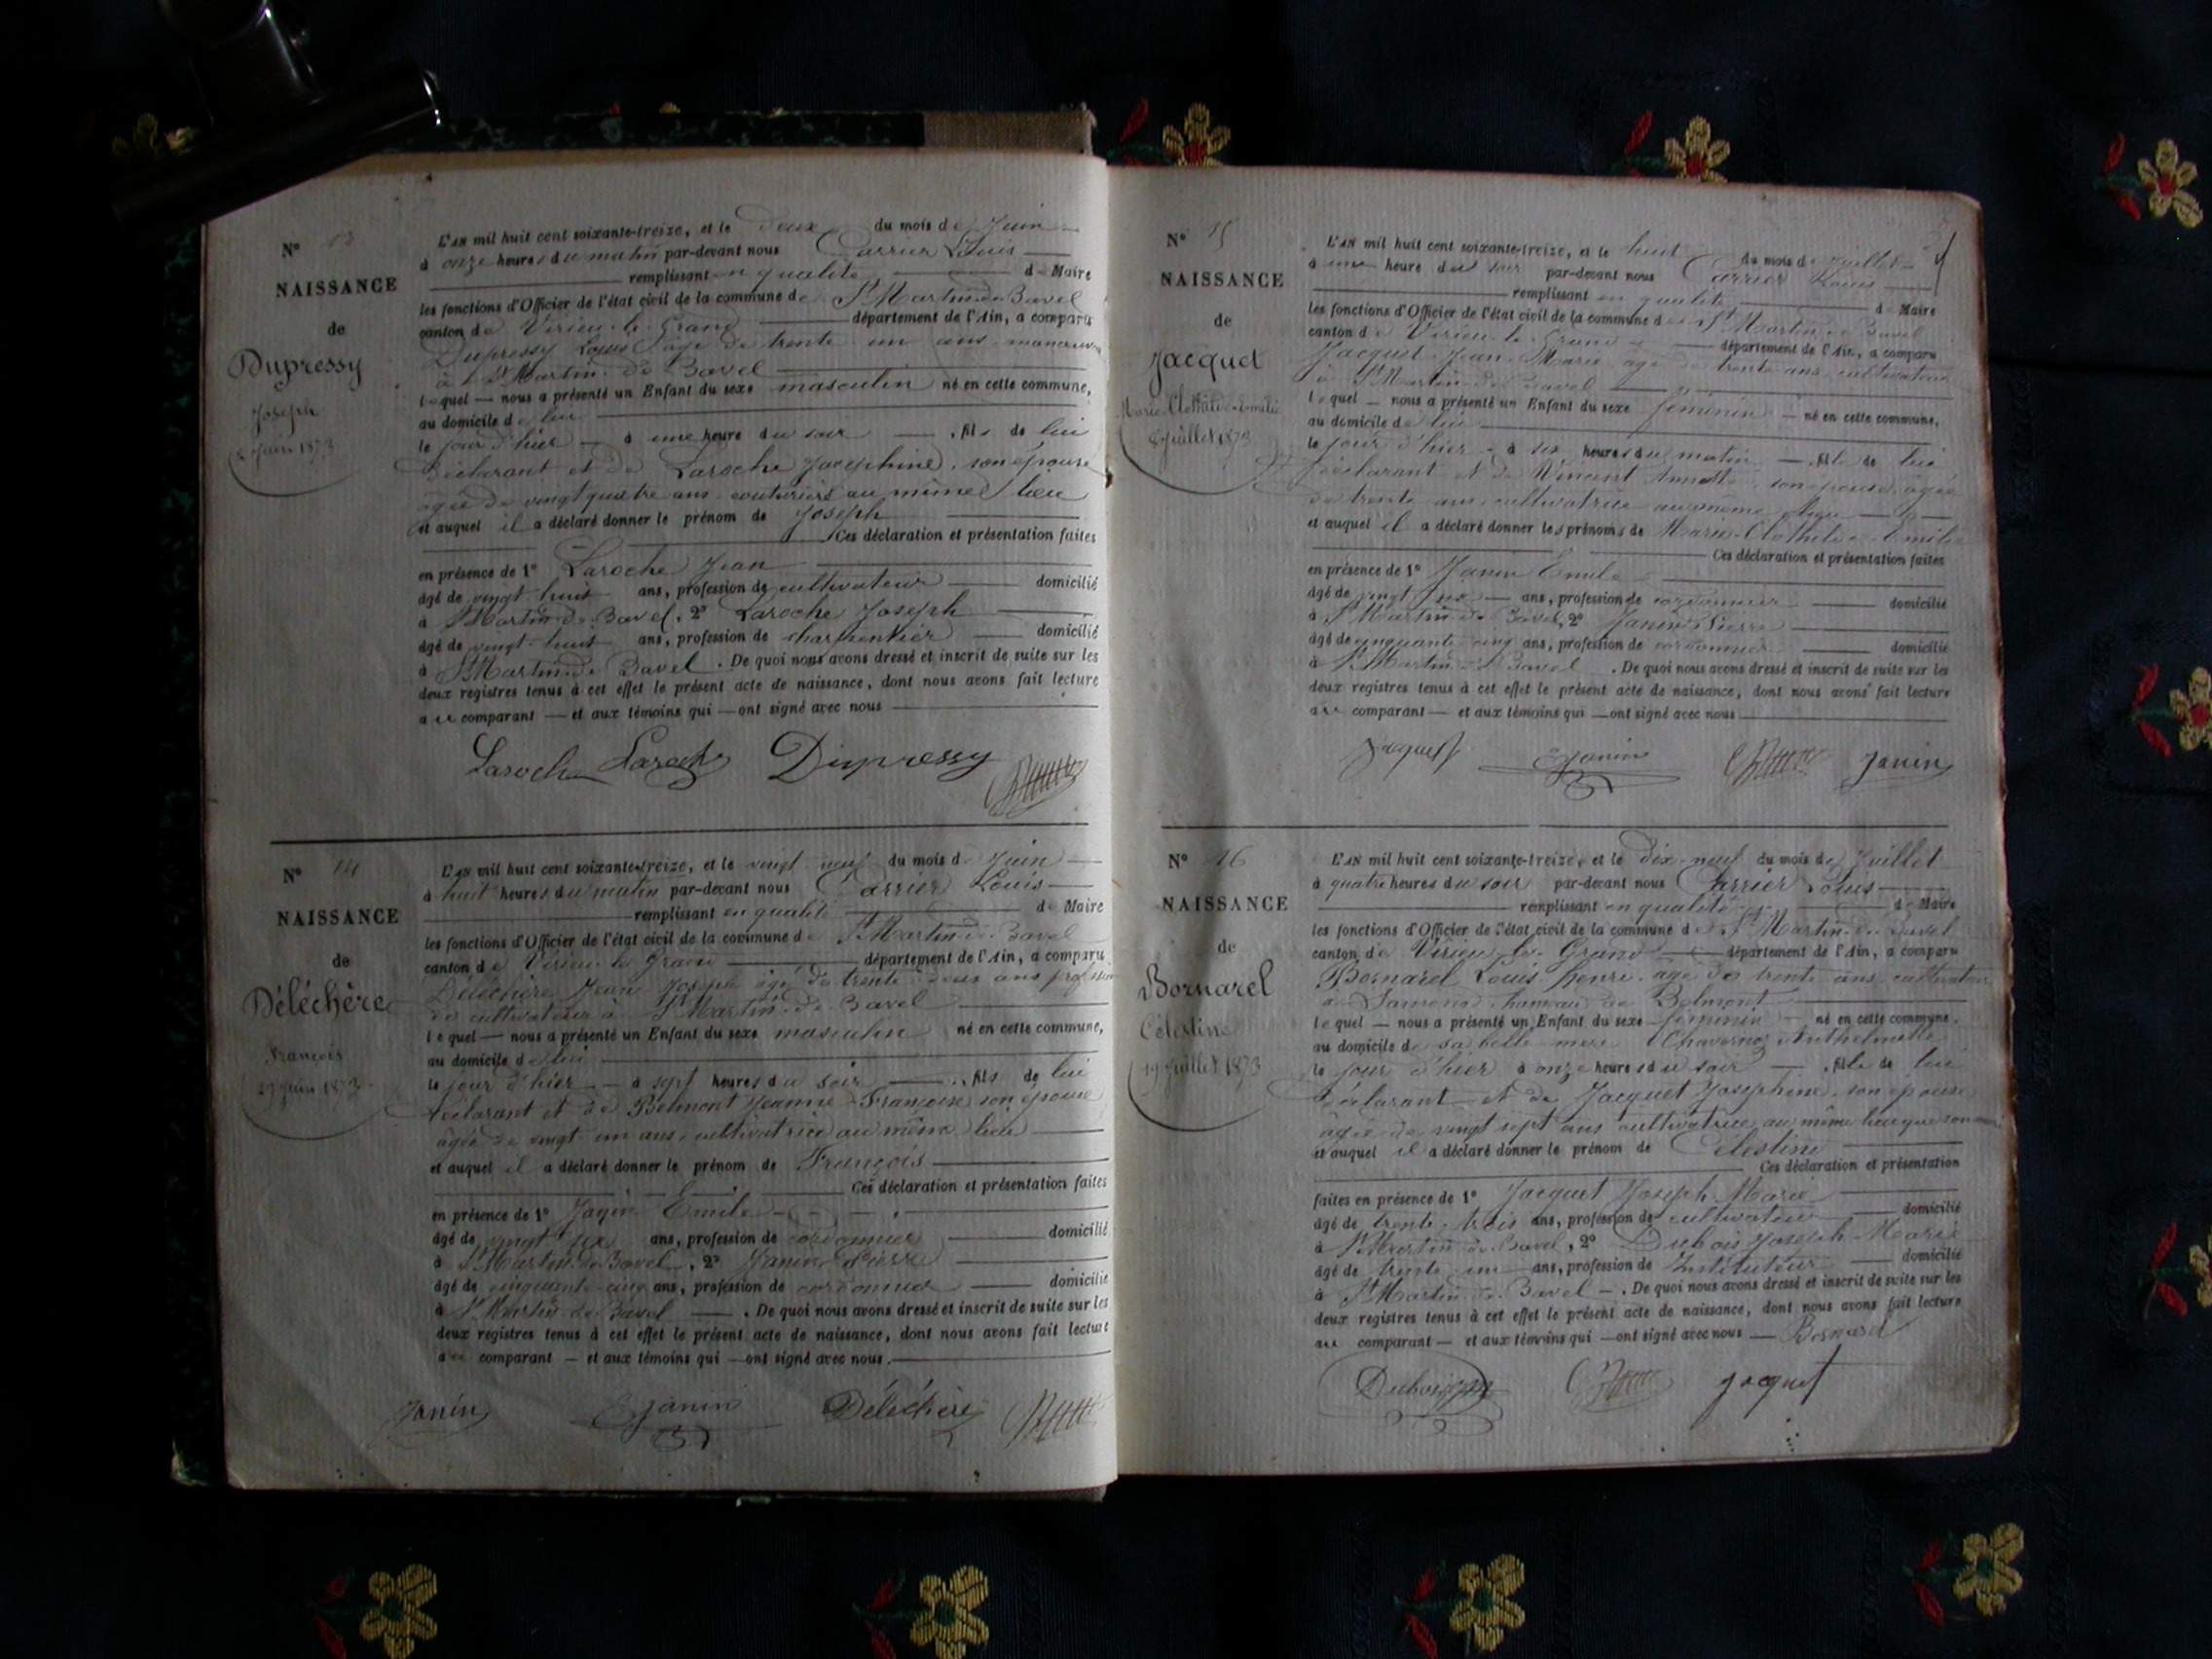 N° 13
NAISSANCE
de
Dupressy
Joseph
2 Juin 1873
L'AN mil huit cent soixante-treize, et le deux du mois de Juin
à onze heures du matin par-devant nous Carrier Louis
remplissant en qualité de Maire
les fonctions d'Officier de l'état civil de la commune de St Martin de Bavel
canton de Virieu-le-Grand département de l'Ain, a comparu
Dupressy Louis âgé de trente un ans manoeuvre
à St Martin de Bavel
lequel nous a présenté un Enfant du sexe masculin né en cette commune,
au domicile de lui
le jour d'hier à une heure du soir , fils de lui
déclarant et de Laroche Joséphine, son épouse
âgée de vingt quatre ans couturière au même lieu
et auquel il a déclaré donner le prénom de Joseph
Ces déclaration et présentation faites
en présence de 1° Laroche Jean
âgé de vingt huit ans, profession de cultivateur domicilié
à St Martin de Bavel, 2° Laroche Joseph
âgé de vingt-huit ans, profession de charpentier domicilié
à St Martin de Bavel . De quoi nous avons dressé et inscrit de suite sur les
deux registres tenus à cet effet le présent acte de naissance, dont nous avons fait lecture
au comparant et aux témoins qui ont signé avec nous
Laroche Laroche Dupressy
N° 14
NAISSANCE
de
Déléchère
François
29 Juin 1873
L'AN mil huit cent soixante-treize, et le vingt neuf du mois de Juin
à huit heures du matin par-devant nous Carrier Louis
remplissant en qualité de Maire
les fonctions d'Officier de l'état civil de la commune de St Martin de Bavel
canton de Virieu le Grand département de l'Ain, a comparu
Déléchère Jean Joseph âgé de trente deux ans profession
de cultivateur à St Martin de Bavel
lequel nous a présenté un Enfant du sexe masculin né en cette commune,
au domicile de lui
le jour d'hier à sept heures du soir , fils de lui
déclarant et de Belmont Jeanne Françoise son épouse
âgée de vingt un ans, cultivatrice au même lieu
et auquel il a déclaré donner le prénom de François
Ces déclaration et présentation faites
en présence de 1° Janin Emile
âgé de vingt six ans, profession de cordonnier domicilié
à St Martin de Bavel, 2° Janin Pierre
âgé de cinquante cinq ans, profession de cordonnier domicilié
à St Martin de Bavel . De quoi nous avons dressé et inscrit de suite sur les
deux registres tenus à cet effet le présent acte de naissance, dont nous avons fait lecture
au comparant et aux témoins qui ont signé avec nous.
Janin E Janin Déléchère
N° 15
NAISSANCE
de
Jacquet
Marie Clothilde Emilie
8 Juillet 1873
L'AN mil huit cent soixante-treize, et le huit du mois de Juillet
à une heure du soir par-devant nous Carrier Louis
remplissant en qualité de Maire
les fonctions d'Officier de l'état civil de la commune de St Martin de Bavel
canton de Virieu le Grand département de l'Ain, a comparu
Jacquet Jean Marie âgé de trente ans cultivateur
à St Martin de Bavel
lequel nous a présenté un Enfant du sexe féminin né en cette commune,
au domicile de lui
le jour d'hier à six heures du matin , fille de lui
déclarant et de Vincent son épouse, âgée
de trente ans cultivatrice au même lieu
et auquel il a déclaré donner les prénoms de Marie Clothilde Emilie
Ces déclaration et présentation faites
en présence de 1° Janin Emile
âgé de vingt six ans, profession de cordonnier domicilié
à St Martin de Bavel, 2° Janin Pierre
âgé de cinquante cinq ans, profession de cordonnier domicilié
à St Martin de Bavel . De quoi nous avons dressé et inscrit de suite sur les
deux registres tenus à cet effet le présent acte de naissance, dont nous avons fait lecture
au comparant et aux témoins qui ont signé avec nous
Jacquet E Janin Janin
N° 16
NAISSANCE
de
Bornarel
Célestine
19 Juillet 1873
L'AN mil huit cent soixante-treize, et le dix-neuf du mois de Juillet
à quatre heures du soir par-devant nous Carrier Louis
remplissant en qualité de Maire
les fonctions d'Officier de l'état civil de la commune de St Martin de Bavel
canton de Virieu le Grand département de l'Ain, a comparu
Bornarel Louis henri âgé de trente ans cultivateur
à hameau de Belmont
lequel nous a présenté un Enfant du sexe féminin né en cette commune.
au domicile de sa belle mère Chavornoz Anthelmette
le jour d'hier à onze heures du soir , fille de lui
déclarant et de Jacquet Joséphine, son épouse
âgée de vingt sept ans cultivatrice au même lieu que son mari
et auquel il a déclaré donner le prénom de Célestine
Ces déclaration et présentation
faites en présence de 1° Jacquet Joseph Marie
âgé de trente-trois ans, profession de cultivateur domicilié
à St Martin de Bavel, 2° Dubois Joseph Marie
âgé de trente un ans, profession de Instituteur domicilié
à St Martin de Bavel . De quoi nous avons dressé et inscrit de suite sur les
deux registres tenus à cet effet le présent acte de naissance, dont nous avons fait lecture
au comparant et aux témoins qui ont signé avec nous Bornarel
Dubois Jacquet